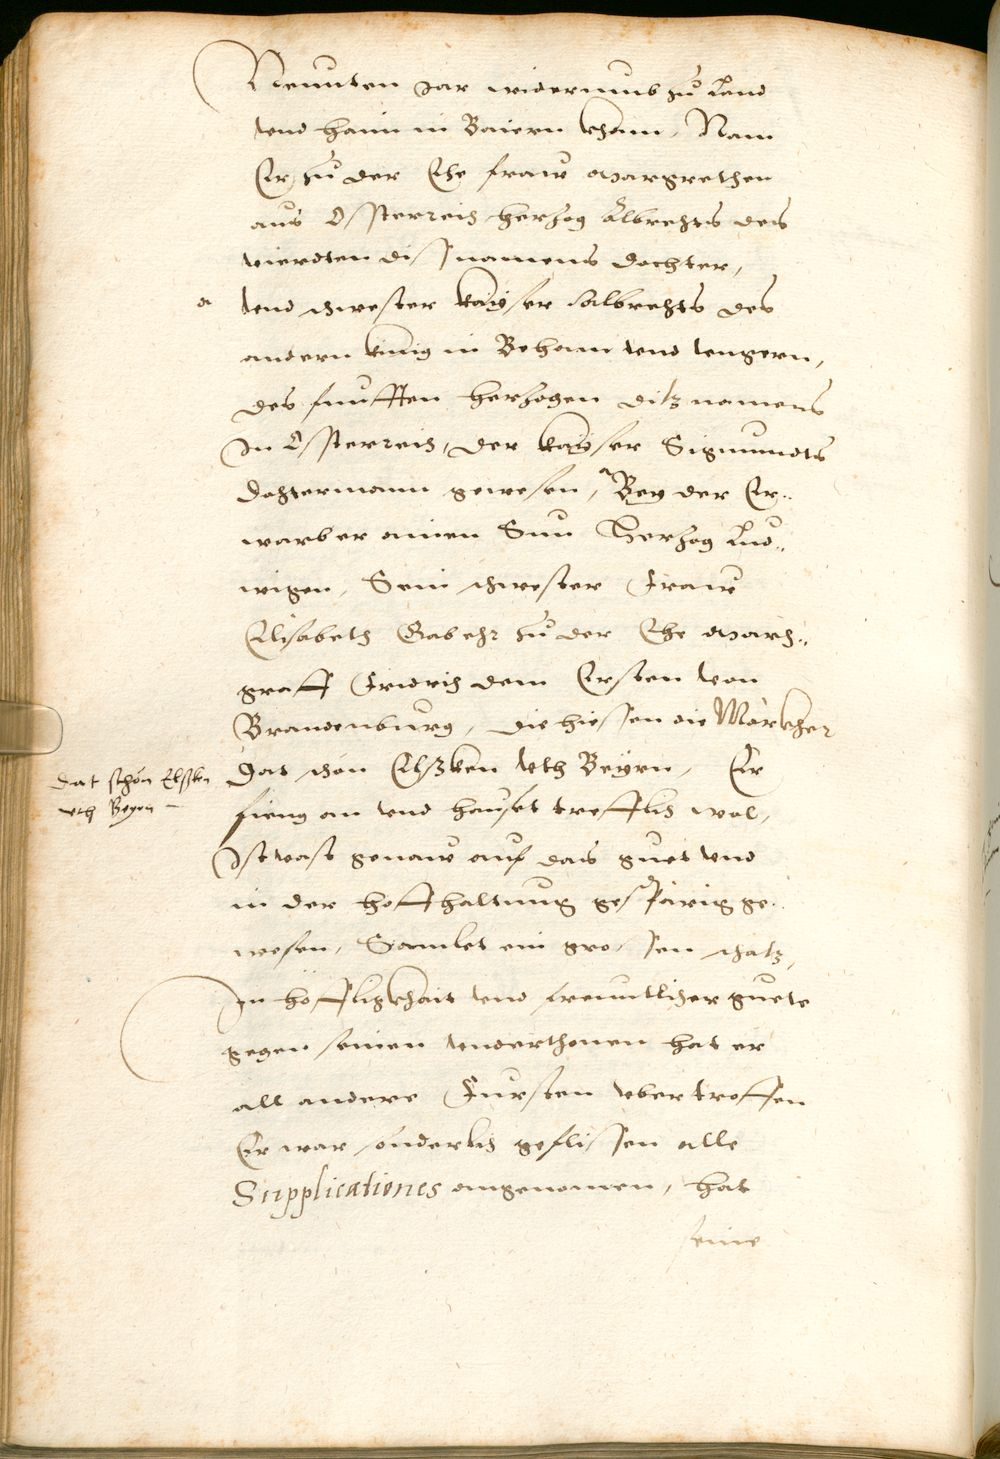 Neunten Jar widerumb zu Land
vnd haim in Baiern kham, Nam
Er zu der Ehe fraw Margrethen
aus Osterreich herzog Albrechts des
vierdten diss namens dochter,
a vnd schwester kayser Albrechts des
andern künig in Behaim vnd vngern,
des funfften herzogen ditz namens
In Osterreich, der kayser Sigmundts
dochtermann gewesen, Bey der Er-
warb er ainen Sun Herzog Lud-
wigen, Sein schwester Fraw
Elisabeth Gab ehr zu der Ehe March-
graff Fridrich dem Ersten von
Brandenburg, die hiessen die Märkher
Dat schön Elßken vth Beyrn, Er
Dat schön Elßken
vth Beyrn
fieng an vnd hauset trefflich wol,
Ist vast genaw auf das guet vnd
in der hoffhaltung gesparig ge-
wesen, Samlet ein grossen schatz,
In höfflichkhait vnd freuntlicher guete
gegen seinen vnderthonen hat er
all andere Fursten vbertroffen
Er war sonderlich geflissen alle
Supplicationes angenomen, hat
seine